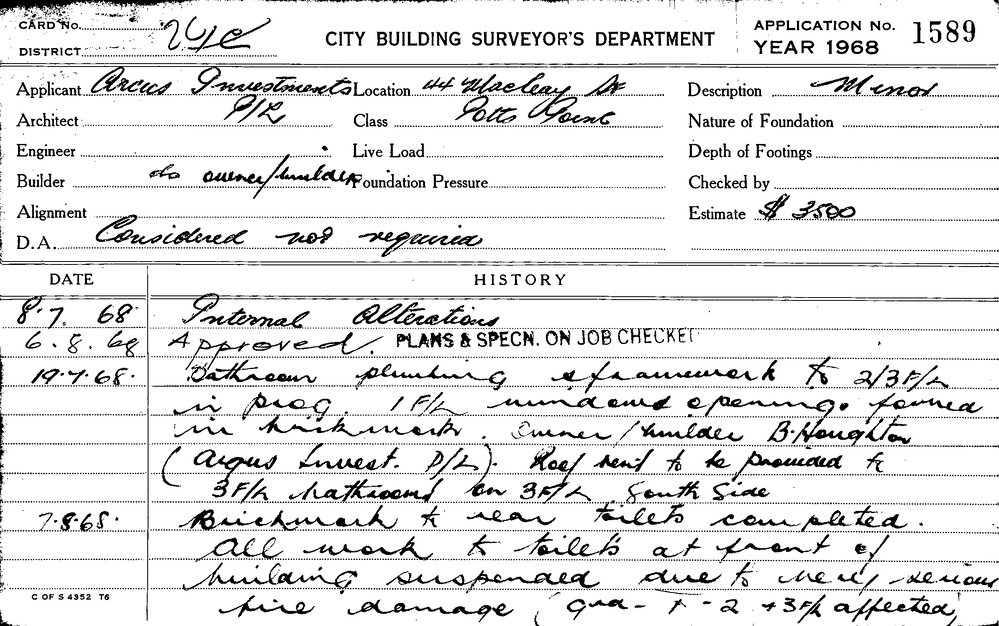 CARD No. CITY BUILDING SURVEYOR'S DEPARTMENT APPLICATION No. 1589
DISTRICT YEAR 1968
Applicant Arcus Investments Location 44 Macleay St Description Minor
Architect P/L Class Potts Point Nature of Foundation
Engineer Live Load Depth of Footings
Builder do owner/builder Foundation Pressure Checked by
Alignment Estimate $ 3500
D.A. Considered not required
DATE HISTORY
8.7. 68. Internal Alterations
6.8.68 Approved. PLANS & SPECN. ON JOB CHECKED
19.7.68. Bathroom plumbing & framework to 2/3 F/L
in prog. 1 F/L windows openings formed
in brickwork. Owner/builder B. Houghton
(Argus Invest. P/L). Roof vent to be provided to
3 F/L bathrooms on 3 F/L South Side
7.8.68. Brickwork to rear toilets completed.
All work to toilets at front of
building suspended due to very serious
C OF S 4352 T6 fire damage (Grd - 1 - 2 + 3 F/L affected)